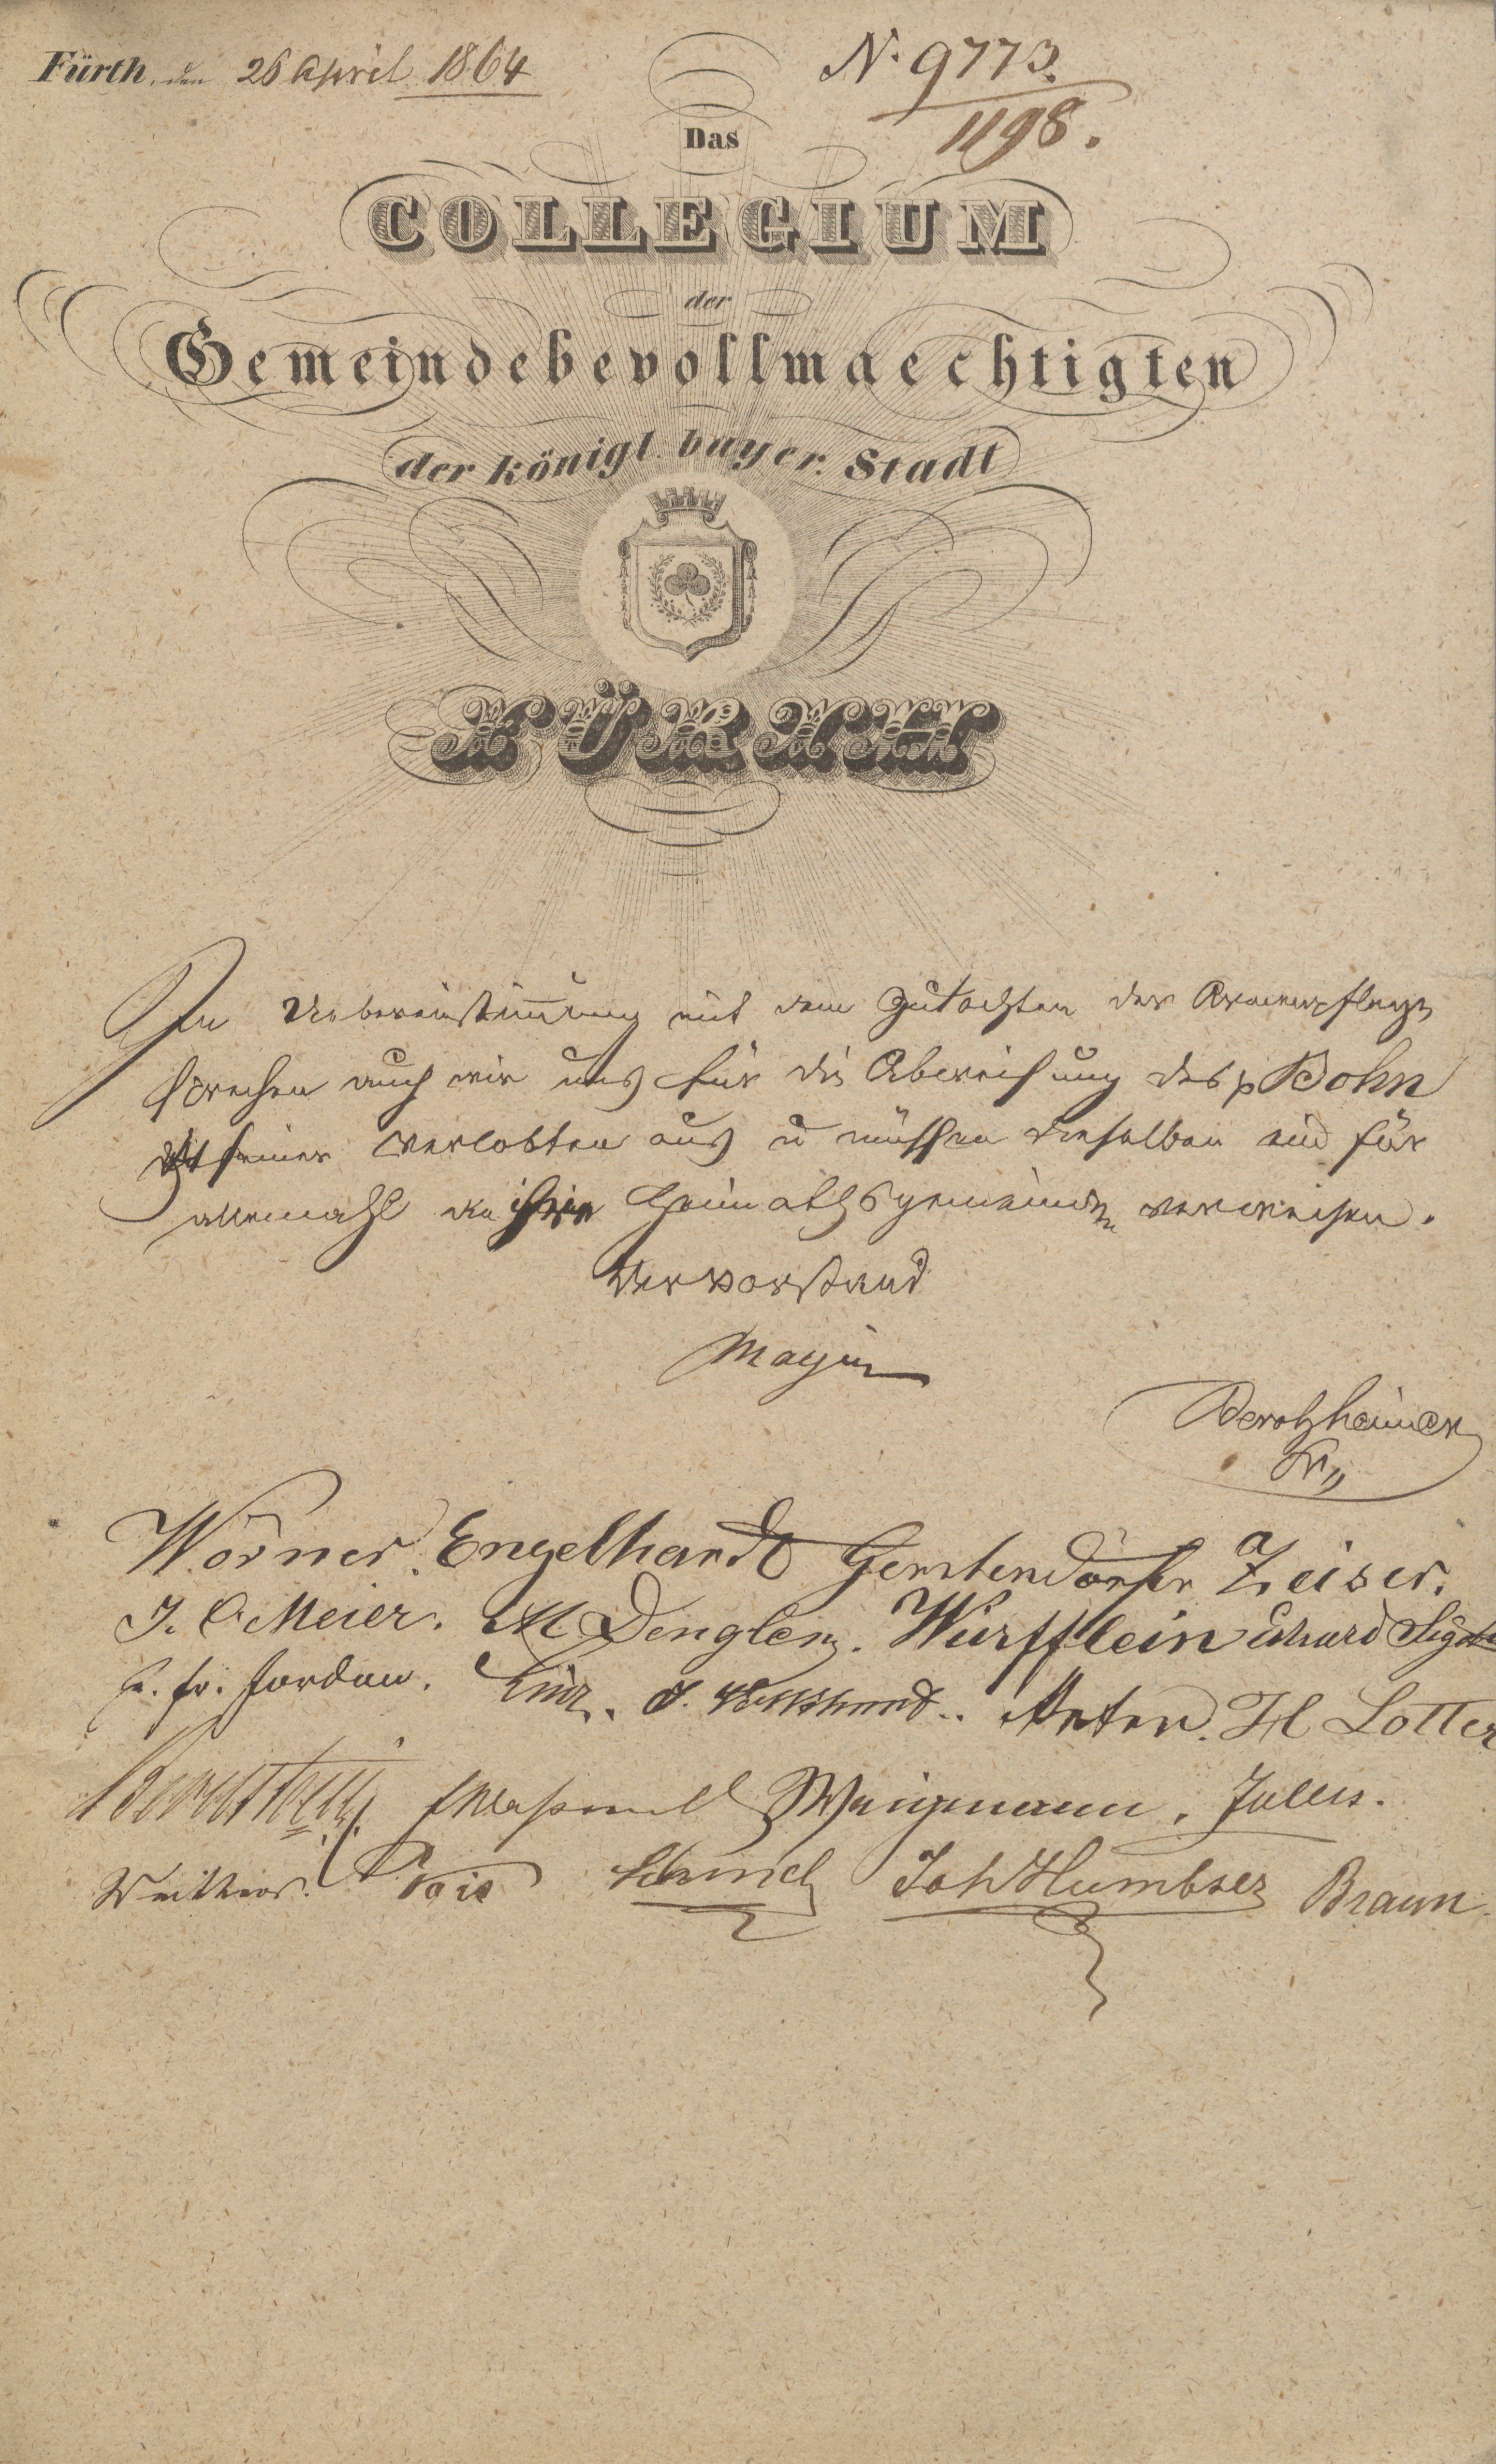 Fürth, den 26 April 1864
N. 9773.
1198.
Das
COLLEGIUM
der
Gemeindebevollmaechtigten
der königl. bayer. Stadt
FÜRTH
In Uebereinstimmung mit dem Gutachten der Armenpflege
sprechen auch wir uns für die Abweisung des p Bohn
seiner Verlobten aus u müssen dieselben ein für
allemahl an ihre Heimathsgemeinden verweisen.
Der Vorstand
Mayer
Berolzheimer
Wörner. Engelhardt Gerstendörfer Zeiser.
J. C. Meier. M Dengler. Würfflein Erhard
fr. Jordan. J. Volkhard. H Lotter
Weigmann.
Joh Humbser Braun